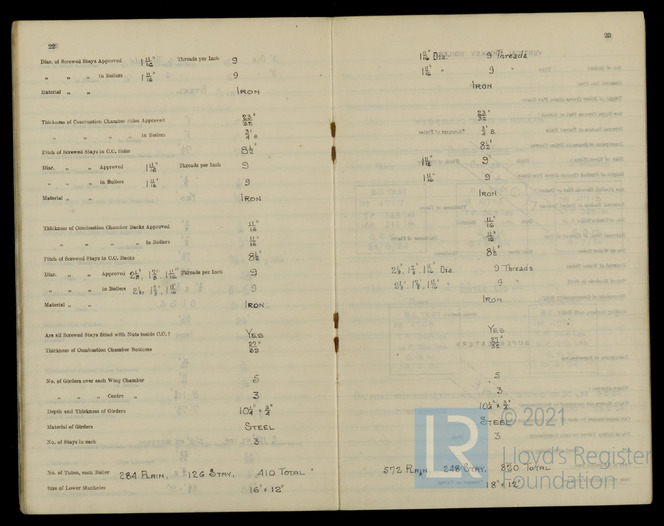 22
Diar. of Screwed Stays Approved 1 11/16" Threads per Inch 9
„ „ „ in Boilers 1 11/16" 9
Material „ „ IRON
Thickness of Combustion Chamber Sides Approved 23/32"
„ „ „ in Boilers 3/4" B.
Pitch of Screwed Stays in C.C. Sides 8 1/2"
Diar. „ „ Approved 1 11/16" Threads per Inch 9
„ „ „ in Boilers 1 11/16" 9
Material „ „ IRON
Thickness of Combustion Chamber Backs Approved 11/16"
„ „ „ „ in Boilers 11/16"
Pitch of Screwed Stays in C.C. Backs 8 1/2"
Diar. „ „ Approved Threads per Inch 9
„ „ „ in Boilers 9
Material „ „ IRON
Are all Screwed Stays fitted with Nuts inside C.C.? YES
Thickness of Combustion Chamber Bottoms 27/32"
No. of Girders over each Wing Chamber 5
„ „ „ Centre „ 3
Depth and Thickness of Girders 10 1/4" × 3/4"
Material of Girders STEEL
No. of Stays in each 3
No. of Tubes, each Boiler 284 PLAIN, 126 STAY, 410 TOTAL
Size of Lower Manholes 16" × 12"
23
1 11/16" Dia. 9 Threads
1 11/16" " 9 "
IRON
23/32"
3/4" B.
8 1/2"
1 11/16" 9"
1 11/16" 9
IRON
11/16"
11/16"
8 1/2"
Dia. 9 Threads
" 9 "
IRON
YES
27/32"
5
3
10 1/4" × 3/4"
STEEL
3
572 PLAIN, 248 STAY, 820 TOTAL
18" × 12"
LR
© 2021
Lloyd's Register
Foundation